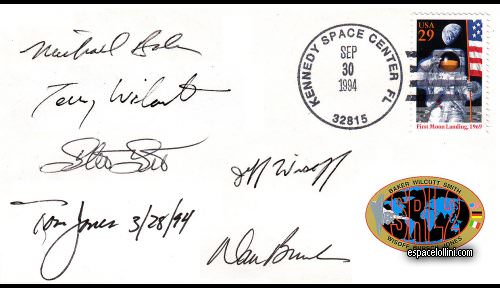 Michael Baker
Terry Wilcutt
Jeff Wisoff
Tom Jones 3/28/94
Dan Bursch
KENNEDY SPACE CENTER FL
SEP
30
1994
32815
USA
29
First Moon Landing, 1969
BAKER WILCUTT SMITH
SRL2
WISOFF JONES
espacelollini.com